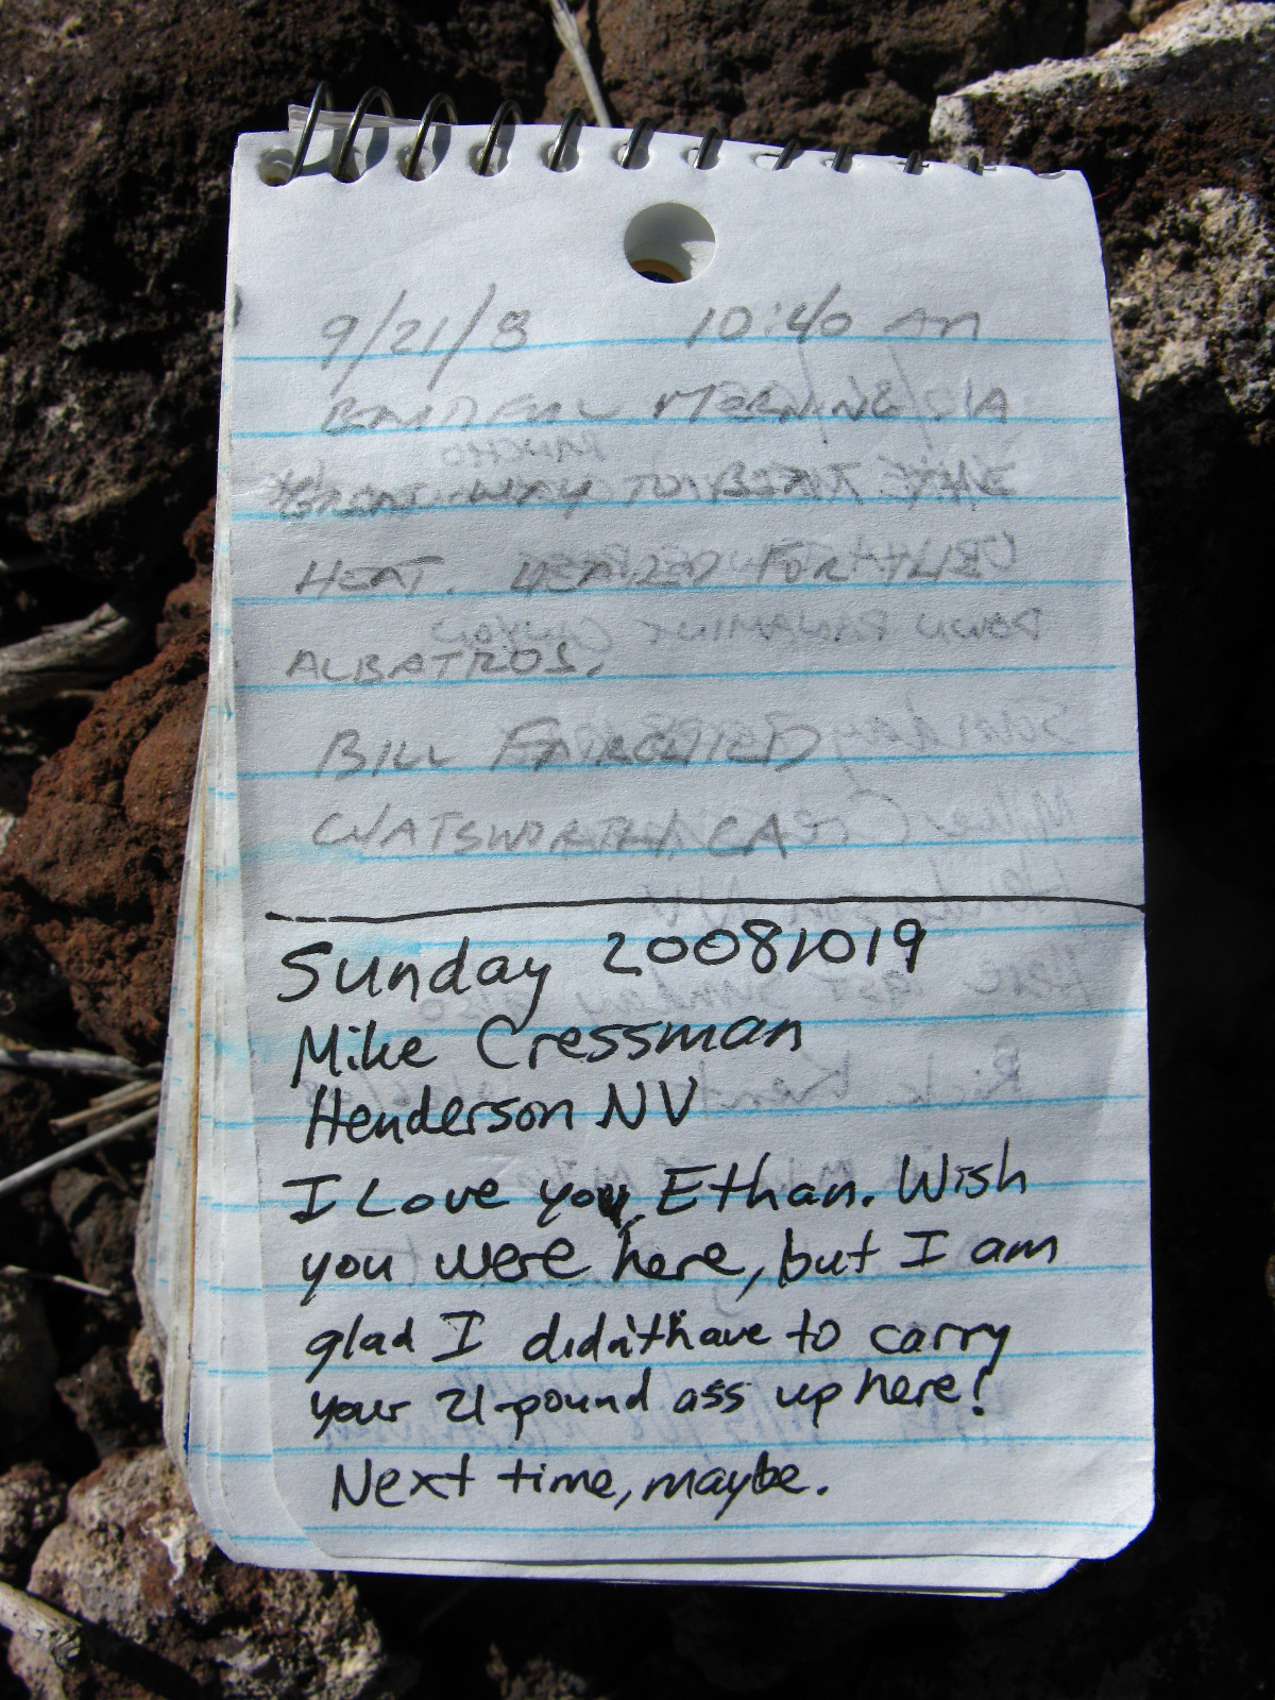 9/21/8 10:40 AM
MORNING
GREAT WAY TO BEAT THE
HEAT. HEADED FOR THE
ALBATROS.
BILL FAIRCHILD
CHATSWORTH, CA
Sunday 20081019
Mike Cressman
Henderson NV
I Love you, Ethan. Wish
you were here, but I am
glad I didn't have to carry
your 21-pound ass up here!
Next time, maybe.